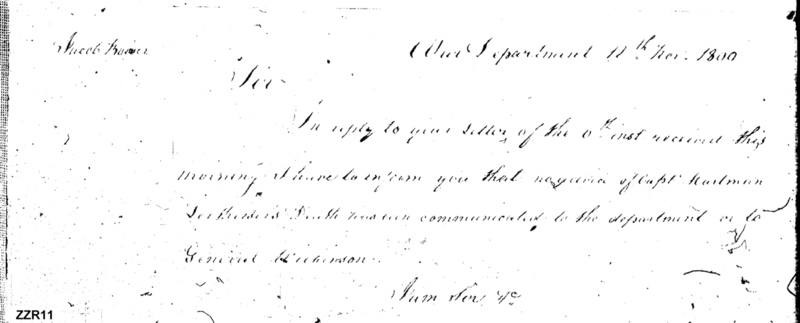 Jacob
War Department 11th Nov. 1800
Sir
In reply to your letter of the 6th inst received this
morning I have to inform you that no of Capt Hartman
Death has been communicated to the department or to
General Wilkinson
I am Sir &c
ZZR11